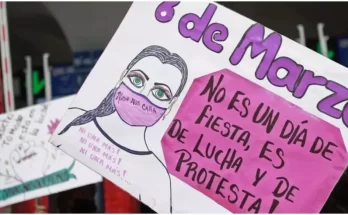 8 de Marzo
NO ES UN DÍA DE
FIESTA, ES
DE LUCHA Y DE
PROTESTA!
NI UNA MAS!
NI UNA MAS!
NI UNA MAS!